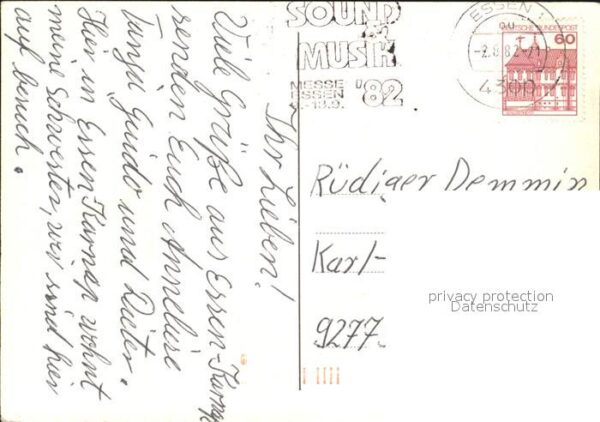 Ihr Lieben!
Viele Grüße aus Essen-Karnap
senden Euch Anneliese
Tanja Guido und Dieter.
Hier in Essen Karnap wohnt
meine Schwester, wir sind hier
auf besuch.
SOUND
MUSIK
MESSE
ESSEN
-13.9.
'82
ESSEN
ou
-2.8.82-21
4300
DEUTSCHE BUNDESPOST
60
Rüdiger Demmin
Karl-
9277
privacy protection
Datenschutz